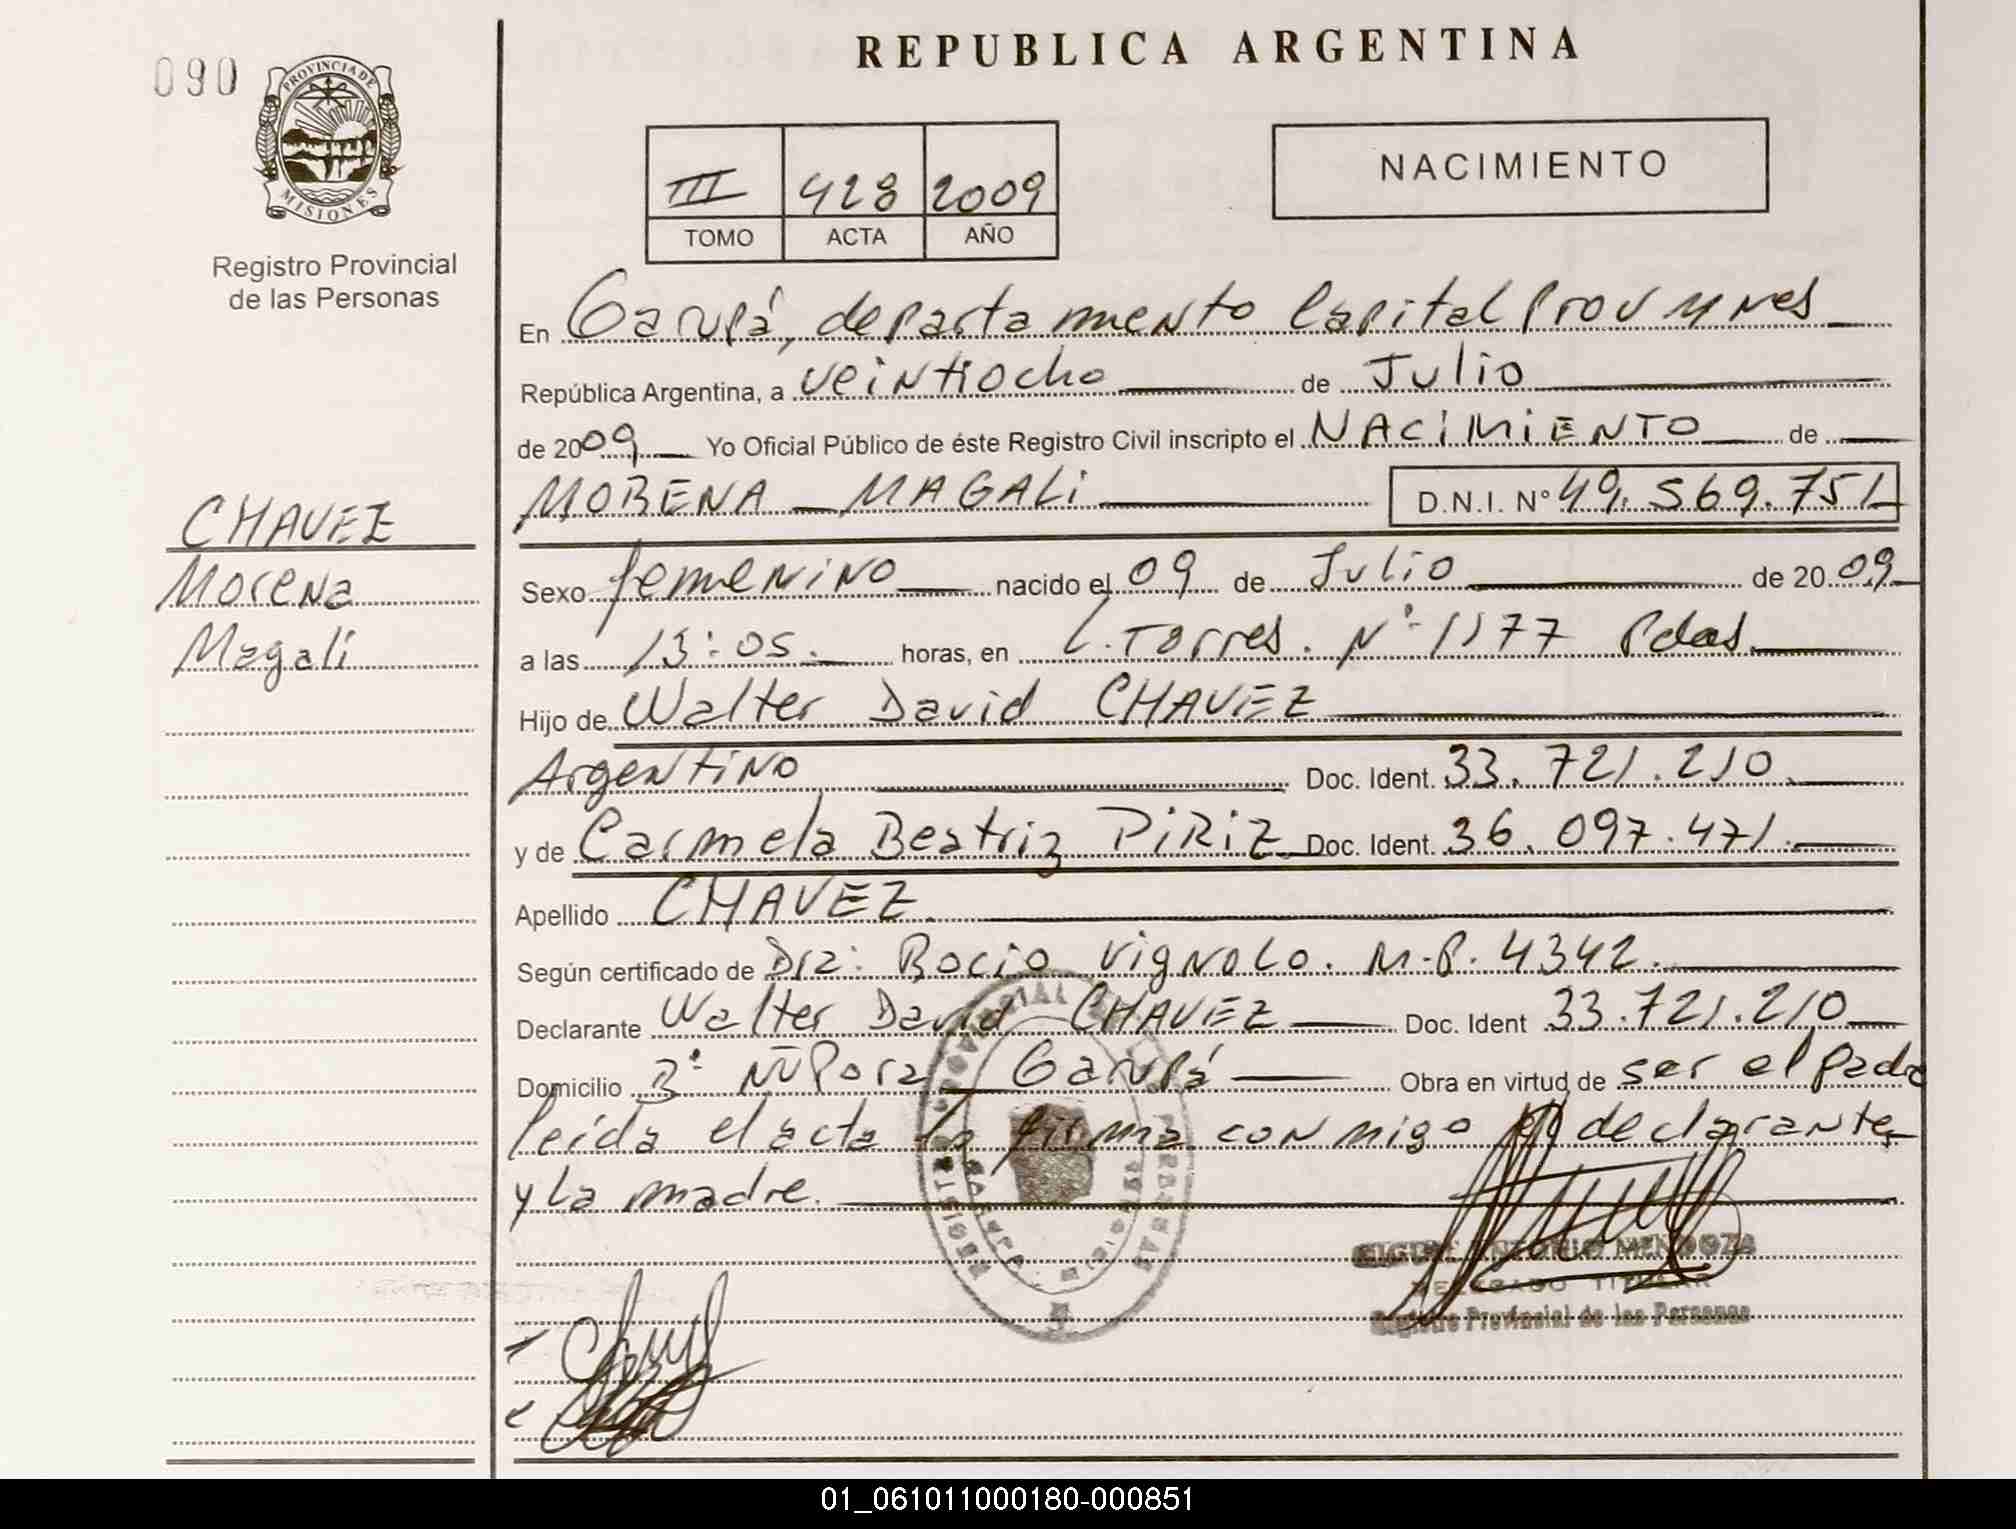 REPUBLICA ARGENTINA
090
PROVINCIA DE
MISIONES
Registro Provincial
de las Personas
NACIMIENTO
III 428 2009
TOMO ACTA AÑO
En Garupá, departamento Capital Prov Mnes
República Argentina, a veintiocho de Julio
de 2009 Yo Oficial Público de éste Registro Civil inscripto el NACIMIENTO de
MORENA MAGALI D.N.I. Nº 49.569.751
CHAVEZ
Morena
Magali
Sexo femenino nacido el 09 de Julio de 2009
a las 13:05. horas, en L. Torres. Nº 1177 Pdas.
Hijo de Walter David CHAVEZ
Argentino Doc. Ident. 33.721.210.
y de Carmela Beatriz PIRIZ Doc. Ident. 36.097.471.
Apellido CHAVEZ.
Según certificado de Dra: Rocio Vignolo. M.P. 4342.
Declarante Walter David CHAVEZ Doc. Ident 33.721.210
Domicilio Bº Ñu Pora Garupá Obra en virtud de ser el padre
leída el acta la firma conmigo el declarante
y la madre.
ANTONIO MENDOZA
DELEGADO TITULAR
Registro Provincial de las Personas
01_061011000180-000851